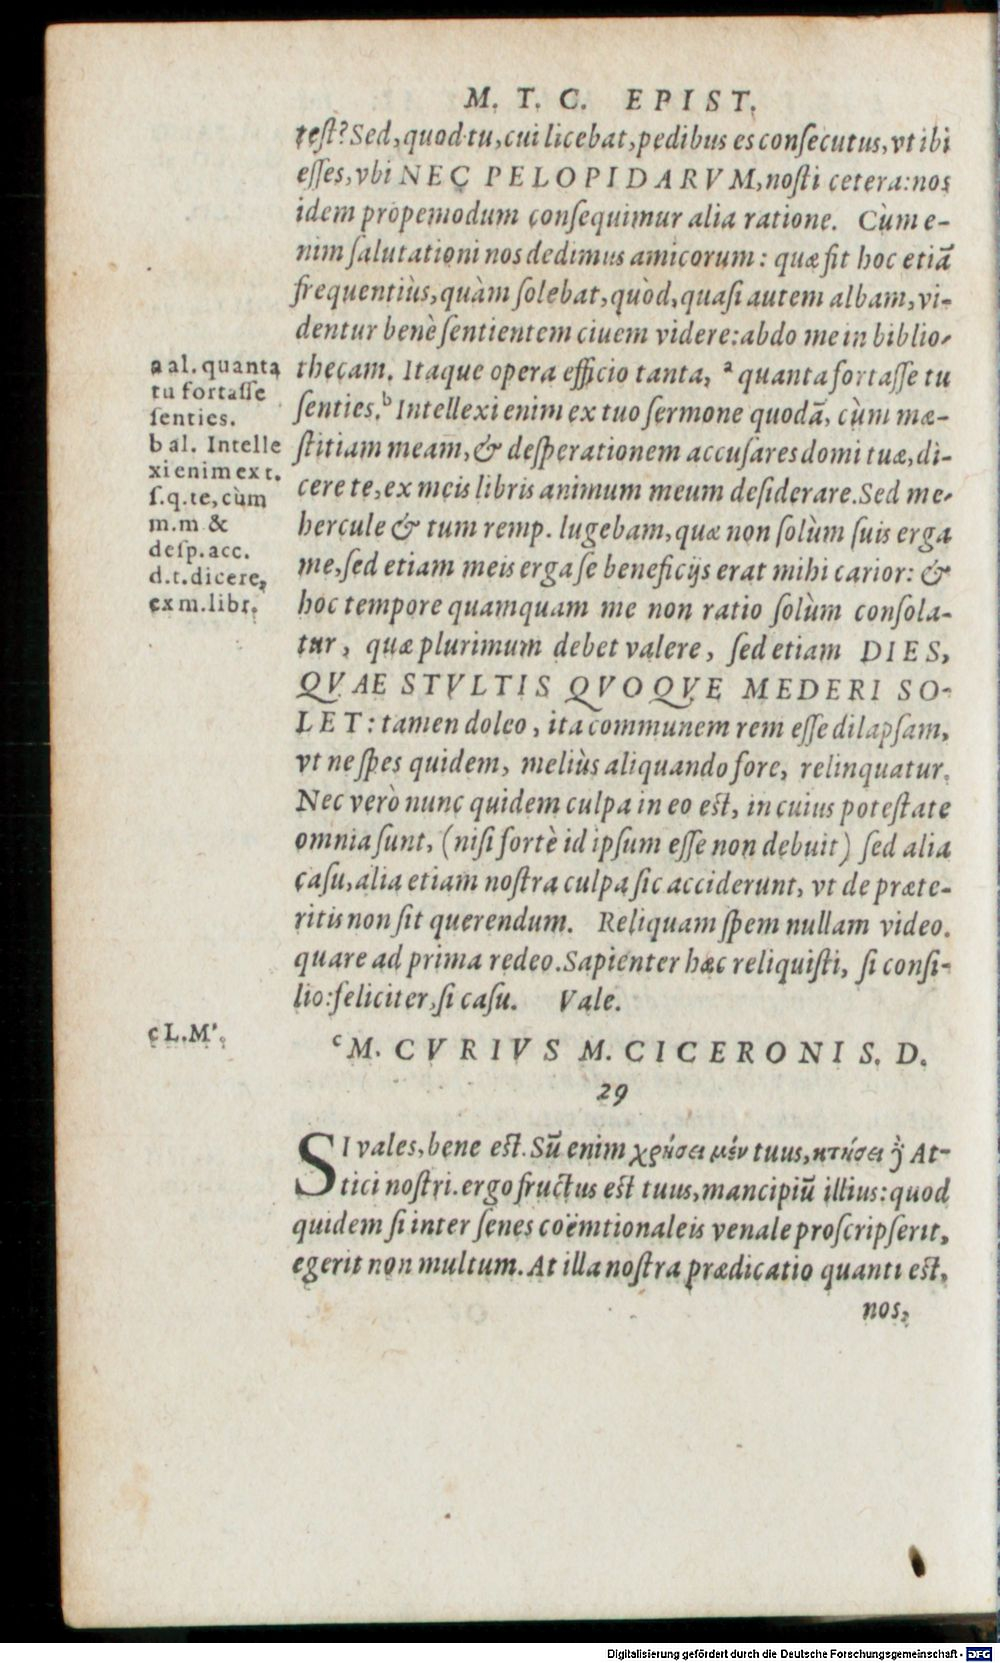 M. T. C. EPIST.
test? Sed, quod tu, cui licebat, pedibus es consecutus, vt ibi
esses, vbi NEC PELOPIDARVM, nosti cetera: nos
idem propemodum consequimur alia ratione. Cùm e-
nim salutationi nos dedimus amicorum: quæ fit hoc etiā
frequentiùs, quàm solebat, quòd, quasi autem albam, vi-
dentur benè sentientem ciuem videre: abdo me in biblio-
thecam. Itaque opera efficio tanta, ª quanta fortasse tu
senties. ᵇ Intellexi enim ex tuo sermone quodā, cùm mæ-
stitiam meam, & desperationem accusares domi tuæ, di-
cere te, ex meis libris animum meum desiderare. Sed me-
hercule & tum remp. lugebam, quæ non solùm suis erga
me, sed etiam meis erga se beneficijs erat mihi carior: &
hoc tempore quamquam me non ratio solùm consola-
tur, quæ plurimum debet valere, sed etiam DIES,
QVAE STVLTIS QVOQVE MEDERI SO-
LET: tamen doleo, ita communem rem esse dilapsam,
vt ne spes quidem, meliùs aliquando fore, relinquatur.
Nec verò nunc quidem culpa in eo est, in cuius potestate
omnia sunt, (nisi fortè id ipsum esse non debuit) sed alia
casu, alia etiam nostra culpa sic acciderunt, vt de præte-
ritis non sit querendum. Reliquam spem nullam video.
quare ad prima redeo. Sapienter hæc reliquisti, si consi-
lio: feliciter, si casu. Vale.
a al. quanta
tu fortasse
senties.
b al. Intelle
xi enim ex t.
s.q.te, cùm
m.m &
desp. acc.
d.t. dicere,
ex m. libr.
c L.M'.
ᶜ M. CVRIVS M. CICERONI S. D.
29
SI vales, bene est. Sū enim χρήσει μέν tuus, κτήσει δ At-
tici nostri. ergo fructus est tuus, mancipiū illius: quod
quidem si inter senes coëmtionaleis venale proscripserit,
egerit non multum. At illa nostra prædicatio quanti est,
nos,
Digitalisierung gefördert durch die Deutsche Forschungsgemeinschaft - DFG